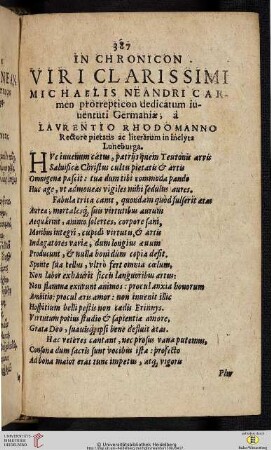 387
IN CHRONICON
VIRI CLARISSIMI
MICHAELIS NEANDRI CAR-
men protrepticon dedicatum iu-
uentuti Germaniæ, à
LAVRENTIO RHODOMANNO
Rectore pietatis ac literarum in inclyta
Luneburga.
HVc iuuenum cœtus, patrijs quem Teutonis arvis
Salvificæ Christus cultu pietatis & artis
Omnigena pascit: tua dum tibi commoda pando
Huc age, ut admoneas vigiles mihi sedulus aures.
Fabula trita canit, quondam quod fulserit ætas
Aurea; mortalesq́, suis virtutibus auctum
Aequârint, animo solertes, corpore sani,
Moribus integri, cupidi virtutis, & artis
Indagatores variæ, dum longius ævum
Producunt, & nulla bonûm copia defit,
Sponte sua tellus, ultrò fert omnia cœlum,
Non labor exhausit sicci languoribus artus:
Non flamma exurunt animos: procul anxia honorum
Ambitio: procul arus amor: non invenit illic
Hospitium belli pestis non tætlis Erinnys.
Virtutum potius studio & sapientiæ amore,
Grata Deo, suavisq́; ipsi bene defluit ætas.
Hæc veteres cantant, nec prorsus vana putemus,
Consona dum sacris sunt vocibus ista: profectò
Ad bona maior erat tunc impetus, atq́, vigoris
Plus
UNIVERSITÄTS-
BIBLIOTHEK
HEIDELBERG
© Universitätsbibliothek Heidelberg
Baden-Württemberg